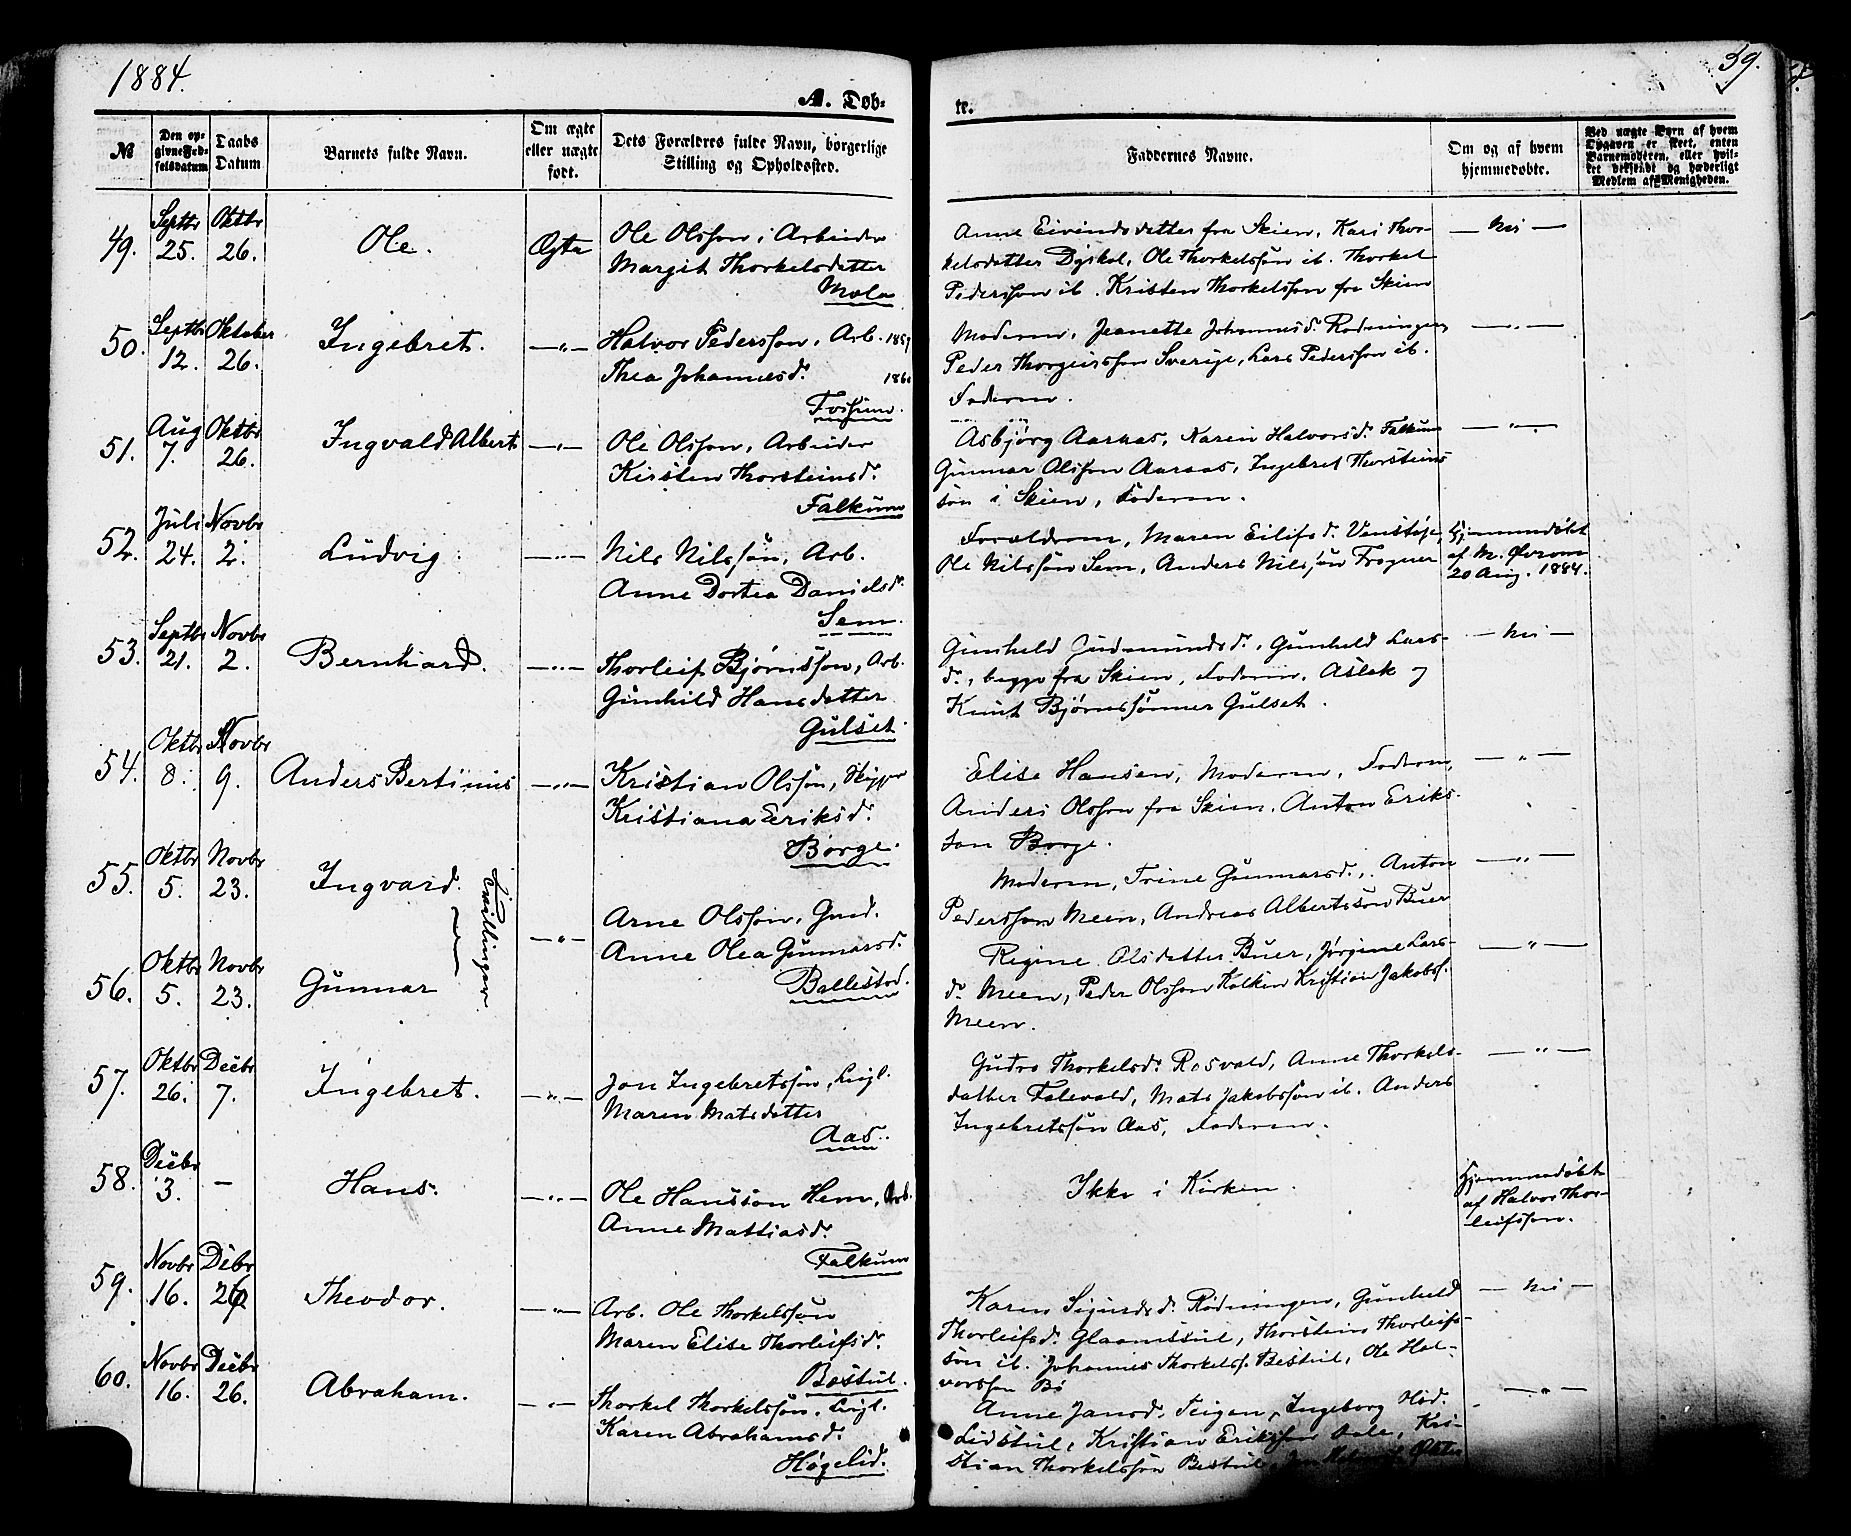 1884.
39.
A. Døb-
te.
№
Den op-
givne Fød-
selsdatum
Daabs
Datum
Barnets fulde Navn.
Om ægte
eller uægte
født.
Dets Forældres fulde Navn, borgerlige
Stilling og Opholdssted.
Faddernes Navne.
Om og af hvem
hjemmedøbte.
Ved uægte Børn af hvem
Opgaven er skeet, enten
Barnemoderen, eller hvil-
ket bekjendt og hæderligt
Medlem af Menigheden.
49.
Septbr
25.
Oktbr
26.
Ole.
Ægte
Ole Olsson, Arbeider
Margit Thorkelsdatter
Mæla
Anne Eivindsdatter fra Skien, Kari Thor-
kelsdatter Dyskol, Ole Thorkelssøn ib. Thorkel
Pedersson ib. Kristen Thorkelsson fra Skien
— Nei —
50.
Septbr
12.
Oktober
26.
Ingebret.
—"—
Halvor Pedersson, Arb. 1859
Thea Johannesd. 186
Fossum.
Moderen, Jeanette Johannesd. Rødningen,
Peder Thorgeirsson Sverige, Lars Pedersson ib.
Faderen.
—"—
51.
Aug
7.
Oktbr
26.
Ingvald Albert
—"—
Ole Olsson, Arbeider
Kirsten Thorsteinsd.
Falkum
Asbjørg Aaraas, Karen Halvorsd. Falkum
Gunnar Olsson Aaraas, Ingebret Thorsteins
søn i Skien, Faderen.
—"—
52.
Juli
24.
Novbr
2.
Ludvig.
—"—
Nils Nilssøn, Arb.
Anne Dortea Danielsd.
Sem.
Forældrene, Maren Eilifsd. Venstøp,
Ole Nilssøn Sem, Anders Nilssøn Frogner
Hjemmedøbt
af M. Øvrom
20 Aug. 1884.
53.
Septbr
21.
Novbr
2.
Bernhard.
—"—
Thorleif Bjørnsson, Arb.
Gunhild Hansdatter
Gulset.
Gunhild Gudmundsd., Gunhild Lars-
d., begge fra Skien, Faderen, Aslak og
Knut Bjørnssønner Gulset.
— Nei —
54.
Oktbr
8.
Novbr
9.
Anders Bertinius
—"—
Kristian Olssøn, Skipper
Kristiana Eriksd.
Borge.
Elise Hansen, Moderen, Faderen,
Anders Olsson fra Skien, Anton Eriks-
søn Borge.
—"—
55.
Oktbr
5.
Novbr
23.
Ingvard.
Tvillinger
—"—
Arne Olsson, Gmd.
Anne Olea Gunnarsd.
Ballestad.
Moderen, Trine Gunnarsd., Anton
Pederssøn Meen, Andreas Albertssøn Buer
—"—
56.
Oktbr
5.
Novbr
23.
Gunnar
Regine Olsdatter Buer, Jørgine Lars-
d. Meen, Peder Olsson Kolken Kristian Jakobss.
Meen.
—"—
57.
Oktbr
26.
Decbr
7.
Ingebret.
—"—
Jon Ingebretssøn, Leigl.
Maren Matsdatter
Aas.
Gudro Thorkelsd. Rosvald, Anne Thorkels-
datter Folevald, Mats Jakobssøn ib. Anders
Ingebretssøn Aas, Faderen.
—"—
58.
Decbr
3.
—
Hans.
—"—
Ole Hansson Hem, Arb.
Anne Mattiasd.
Falkum
Ikke i Kirken.
Hjemmedøbt
af Halvor Thor-
leifsson.
59.
Novbr
16.
Debr
26
Theodor.
—"—
Arb. Ole Thorkelssøn
Maren Elise Thorleifsd.
Bøstul.
Karen Sigurdsd. Rødningen, Gunhild
Thorleifsd. Glaamstul, Thorstein Thorleifs-
søn ib. Johannes Thorkelss. Bestul, Ole Hal-
vorsson Bø
— Nei —
60.
Novbr
16.
Decbr
26.
Abraham.
—"—
Thorkel Thorkelssøn, Leigl.
Karen Abrahamsd.
Høgelid.
Anne Jansd. Teigen, Ingeborg Hød.
Lidstul, Kristian Eriksson Dale, Kri-
stian Thorkelssøn Bestul,
—"—